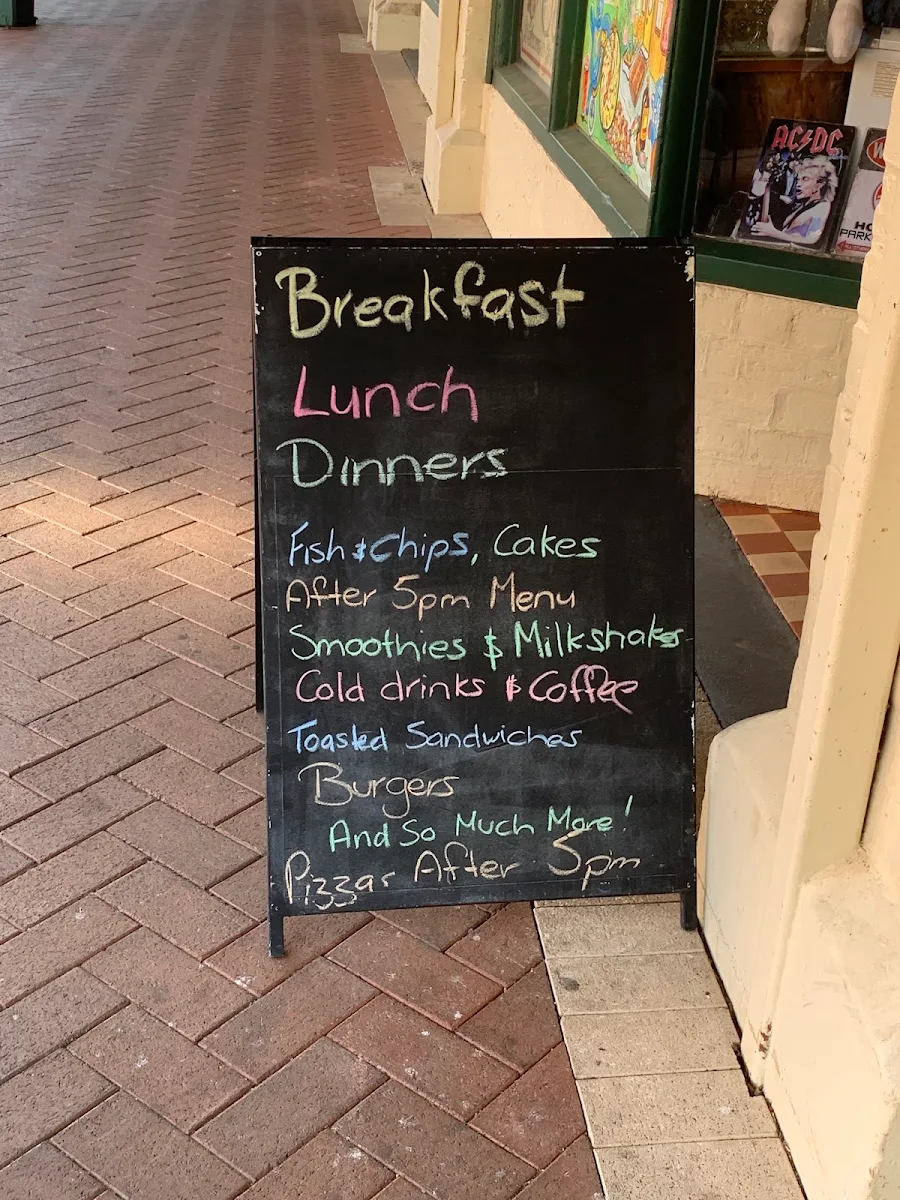 Breakfast
Lunch
Dinners
Fish & Chips, Cakes
After 5pm Menu
Smoothies & Milkshakes
Cold drinks & Coffee
Toasted Sandwiches
Burgers
And So Much More!
Pizzas After 5pm
AC/DC